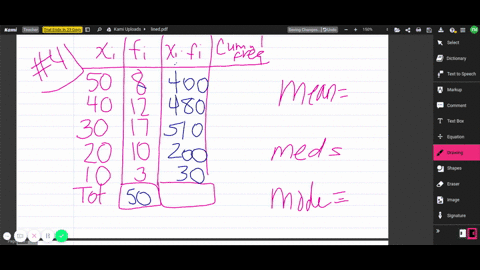 Kami
Teacher
Trial Ends in 29 Days
Kami Uploads > lined.pdf
150%
#4
xi fi xi·fi Cumul freq
50 8 400
40 12 480
30 17 510
20 10 200
10 3 30
Tot 50
Mean=
meds
mode=
Select
Dictionary
Text to Speech
Markup
Comment
Text Box
Equation
Drawing
Shapes
Eraser
Image
Signature